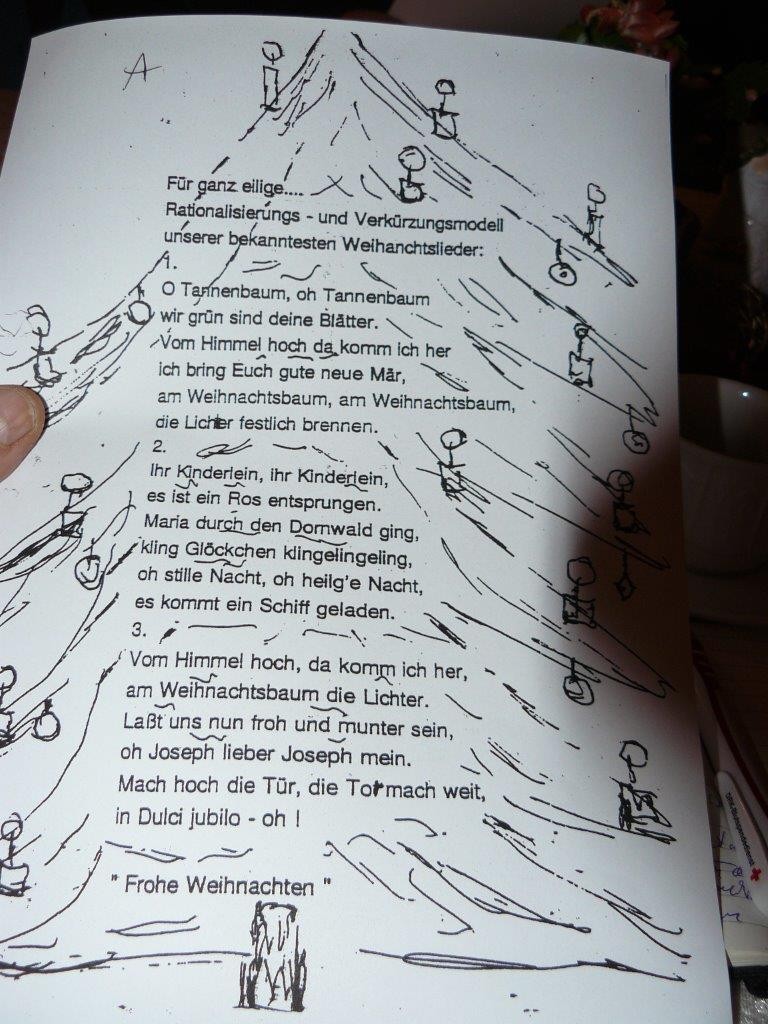 A
Für ganz eilige....
Rationalisierungs - und Verkürzungsmodell
unserer bekanntesten Weihanchtslieder:
1.
O Tannenbaum, oh Tannenbaum
wir grün sind deine Blätter.
Vom Himmel hoch da komm ich her
ich bring Euch gute neue Mär,
am Weihnachtsbaum, am Weihnachtsbaum,
die Lichter festlich brennen.
2.
Ihr Kinderlein, ihr Kinderlein,
es ist ein Ros entsprungen.
Maria durch den Dornwald ging,
kling Glöckchen klingelingeling,
oh stille Nacht, oh heilg'e Nacht,
es kommt ein Schiff geladen.
3.
Vom Himmel hoch, da komm ich her,
am Weihnachtsbaum die Lichter.
Laßt uns nun froh und munter sein,
oh Joseph lieber Joseph mein.
Mach hoch die Tür, die Tor mach weit,
in Dulci jubilo - oh !
" Frohe Weihnachten "